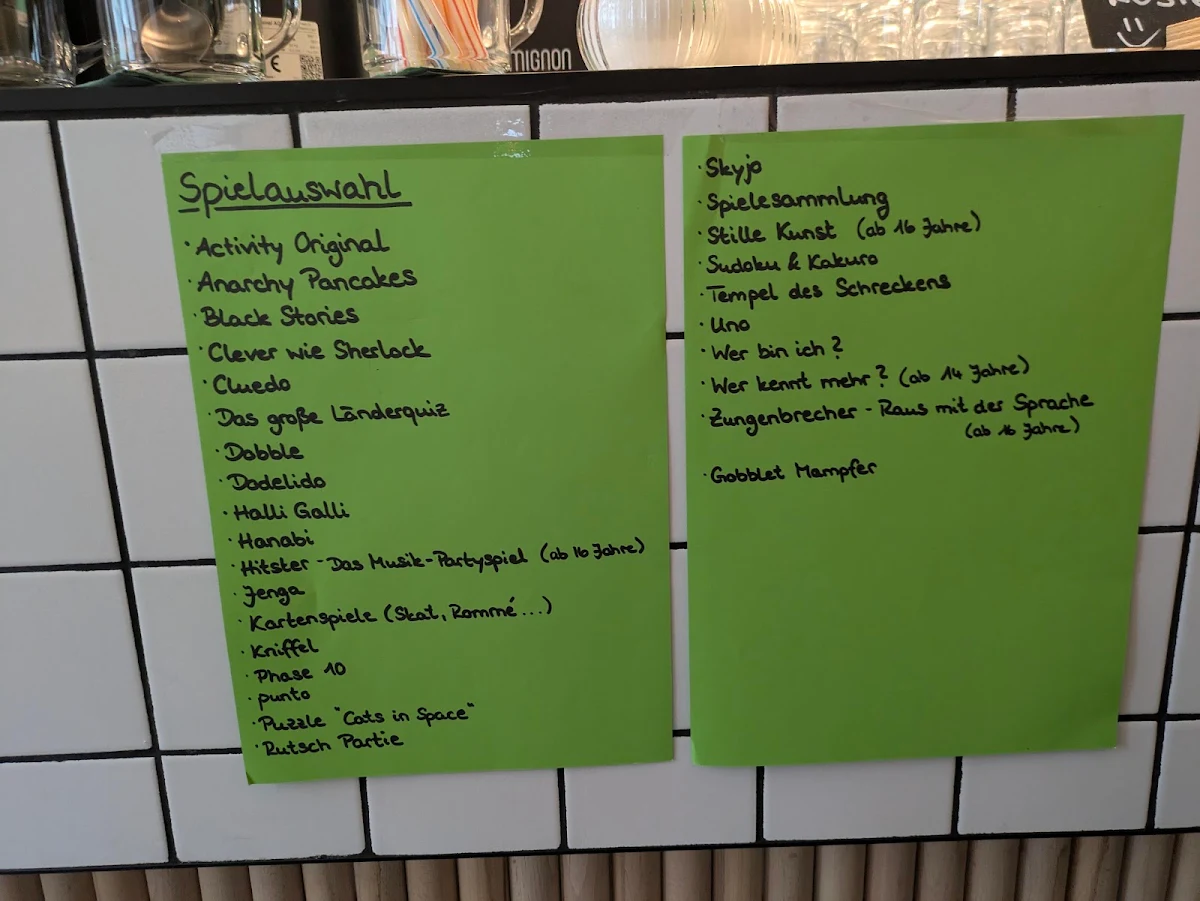 MIGNON
Spielauswahl
· Activity Original
· Anarchy Pancakes
· Black Stories
· Clever wie Sherlock
· Cluedo
· Das große Länderquiz
· Dobble
· Dodelido
· Halli Galli
· Hanabi
· Hitster - Das Musik-Partyspiel (ab 16 Jahre)
· Jenga
· Kartenspiele (Skat, Rommé...)
· Kniffel
· Phase 10
· punto
· Puzzle "Cats in Space"
· Rutsch Partie
· Skyjo
· Spielesammlung
· Stille Kunst (ab 16 Jahre)
· Sudoku & Kakuro
· Tempel des Schreckens
· Uno
· Wer bin ich?
· Wer kennt mehr? (ab 14 Jahre)
· Zungenbrecher - Raus mit der Sprache
(ab 16 Jahre)
· Gobblet Mampfer